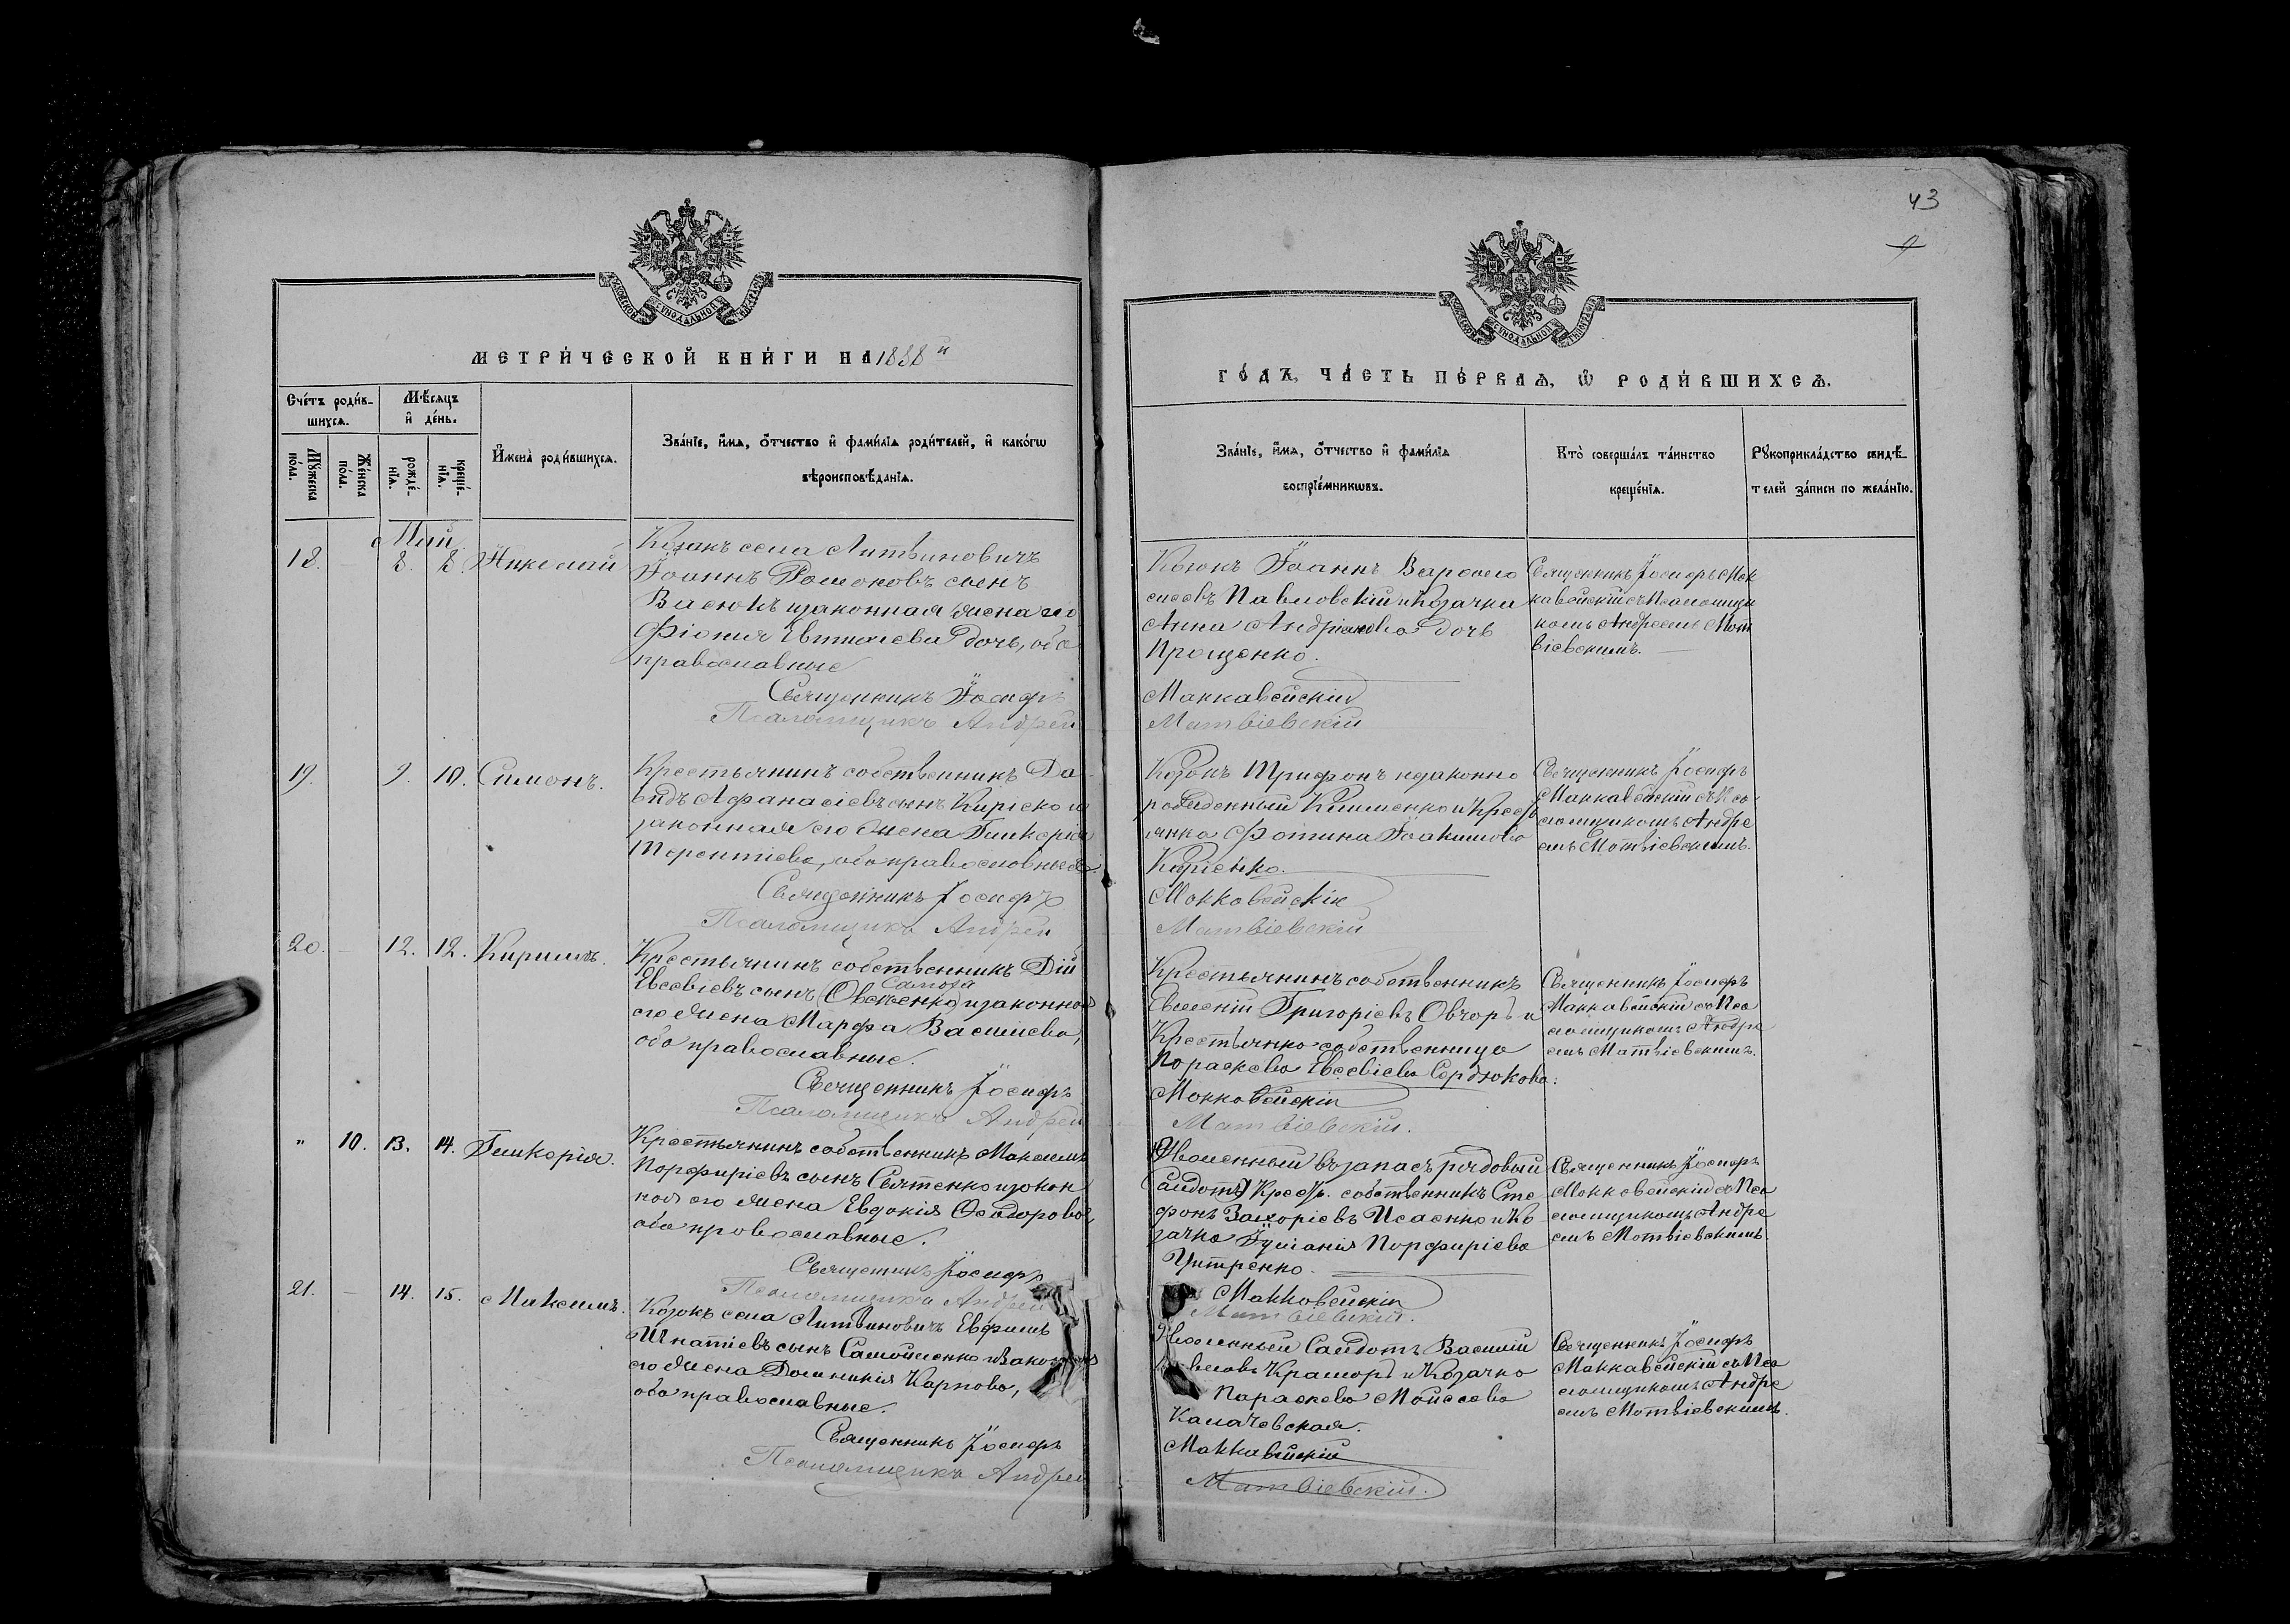 43
МЕТРИЧЕСКОЙ КНИГИ НА 1888 й
ГОДЪ, ЧАСТЬ ПЕРВАЯ, Ѡ РОДИВШИХСЯ.
Счетъ родив-
шихся.
Мѣсяцъ
и день.
Мужеска
пола.
Женска
пола.
рожде-
нія.
креще-
нія.
Имена родившихся.
Званіе, имя, отчество и фамилія родителей, и какогѡ
вѣроисповѣданія.
Званіе, имя, отчество и фамилія
воспріемниковъ.
Кто совершалъ таинство
крещенія.
Рукоприкладство свидѣ-
телей записи по желанію.
Май
18. — 8. 8. Николай
Козакъ села Литвиновичъ
Іоаннъ Романовъ сынъ
Васюкъ изаконная жена его
Фіонія дочь, оба
православные
Священникъ Іосифъ
Псаломщикъ Андрей
Іоаннъ Варѳоло
Павловскій и Козачка
Анна Андріанова дочь
Прощенко.
Маккавейскій
Матвіевскій
Священникъ Іосифъ Мак
кавейскій съ Псаломщи
комъ Андреемъ Мат
віевскимъ.
19. 9. 10. Симонъ.
Крестьянинъ собственникъ Да
видъ Аѳанасіевъ сынъ Киріенко и
законная его жена Гликерія
Терентіева, оба православные.
Священникъ Іосифъ
Псаломщикъ Андрей
Козакъ Трифонъ незаконно
рожденный Клименко и Крест
янка Фотина Іоакимова
Киріенко.
Маккавейскій
Матвіевскій
Священникъ Іосифъ
Маккавейскій съ Пса
ломщикомъ Андре
емъ Матвіевскимъ.
20. — 12. 12. Кириллъ.
Крестьянинъ собственникъ Дій
Самоза
Евсевіевъ сынъ (Овсѣенко) изаконная
его жена Марфа Васильева,
оба православные.
Священникъ Іосифъ
Псаломщикъ Андрей
Крестьянинъ собственникъ
Григоріевъ Овчаръ и
Крестьянка собственница
Параскева Евсевіева Сердюкова.
Маккавейскій
Матвіевскій.
Священникъ Іосифъ
Маккавейскій съ Пса
ломщикомъ Андре
емъ Матвіевскимъ.
" 10. 13. 14. Гликерія.
Крестьянинъ собственникъ Максимъ
Порфиріевъ сынъ Святенко изакон
ная его жена Евдокія Ѳеодорова,
оба православные.
Священникъ Іосифъ
Псаломщикъ Андрей
Уволенный въ запасъ рядовый
(Салдатъ) Крест. собственникъ Сте
фанъ Захаріевъ Исаенко и Ко
зачка Іуліанія Порфиріева
Цитренко.
Маккавейскій
Матвіевскій.
Священникъ Іосифъ
Маккавейскій съ Пса
ломщикомъ Андре
емъ Матвіевскимъ.
21. — 14. 15. Максимъ.
Козакъ села Литвиновичъ Евфимъ
Игнатіевъ сынъ Самойленко и законная
его жена Домникія Карпова,
оба православные.
Священникъ Іосифъ
Псаломщикъ Андрей
Уволенный Салдатъ Василій
Крамаръ и Козачка
Параскева Моисеева
Калачевская.
Маккавейскій
Матвіевскій.
Священникъ Іосифъ
Маккавейскій съ Пса
ломщикомъ Андре
емъ Матвіевскимъ.